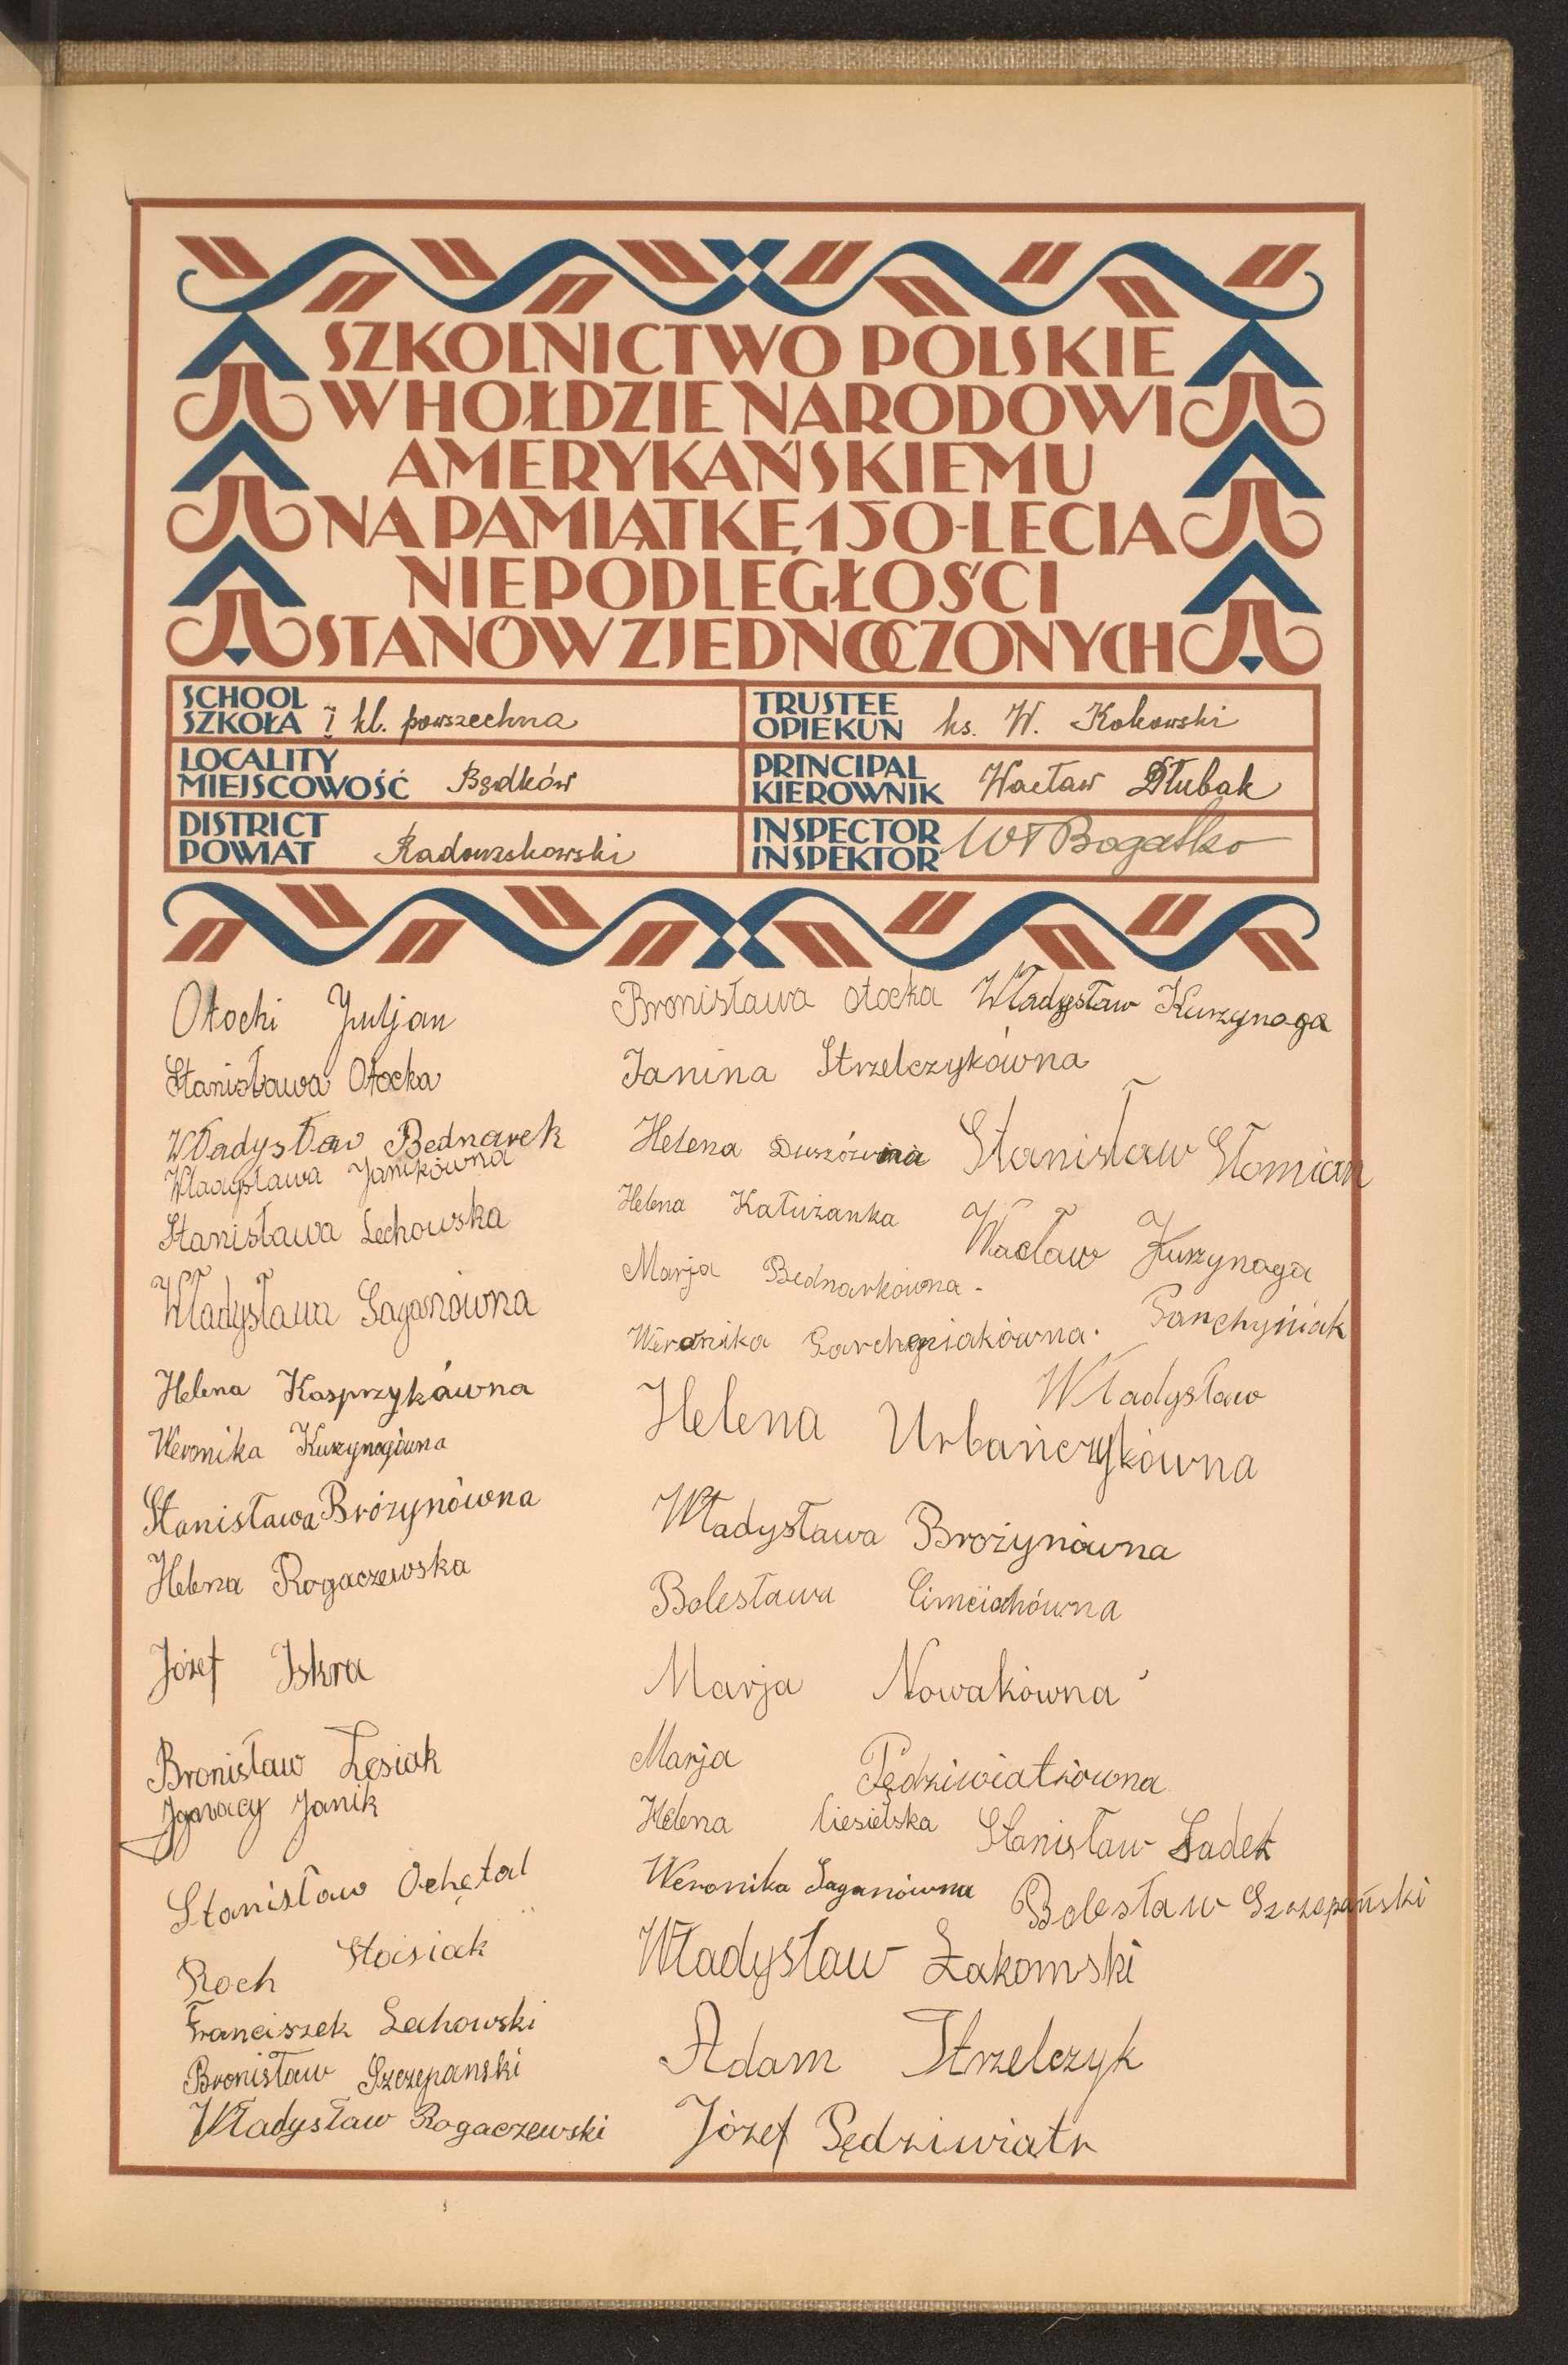 SZKOLNICTWO POLSKIE
W HOŁDZIE NARODOWI
AMERYKAŃSKIEMU
NA PAMIĄTKĘ 150-LECIA
NIEPODLEGŁOŚCI
STANÓW ZJEDNOCZONYCH
SCHOOL
SZKOŁA kl. powszechna
TRUSTEE
OPIEKUN ks. W. Kokowski
LOCALITY
MIEJSCOWOŚĆ Będków
PRINCIPAL
KIEROWNIK Wacław Dłubak
DISTRICT
POWIAT Radomskowski
INSPECTOR
INSPEKTOR Wł Bogatko
Otocki Juljan
Stanisława Otocka
Władysław Bednarek
Władysława Janikówna
Stanisława Lechowska
Władysława Saganówna
Helena Kasprzykówna
Weronika Kurzynogówna
Stanisława Brożynówna
Helena Rogaczewska
Józef Iskra
Bronisław Lesiak
Ignacy Janik
Stanisław Ochętal
Roch Stasiak
Franciszek Lechowski
Bronisław Szczepanski
Władysław Rogaczewski
Bronisława Otocka Władysław Kurzynoga
Janina Strzelczykówna
Helena Duszówna Stanisław Słomian
Helena Kałużanka Wacław Kurzynoga
Marja Bednarkówna -
Weronika Garchyniakówna. Garchyniak
Władysław
Helena Urbańczykówna
Władysława Brożynówna
Bolesława Cimciohówna
Marja Nowakówna
Marja Pędziwiatrówna
Helena Ciesielska Stanisław Sadek
Weronika Saganówna Bolesław Szczepański
Władysław Żakomski
Adam Strzelczyk
Józef Pędziwiatr